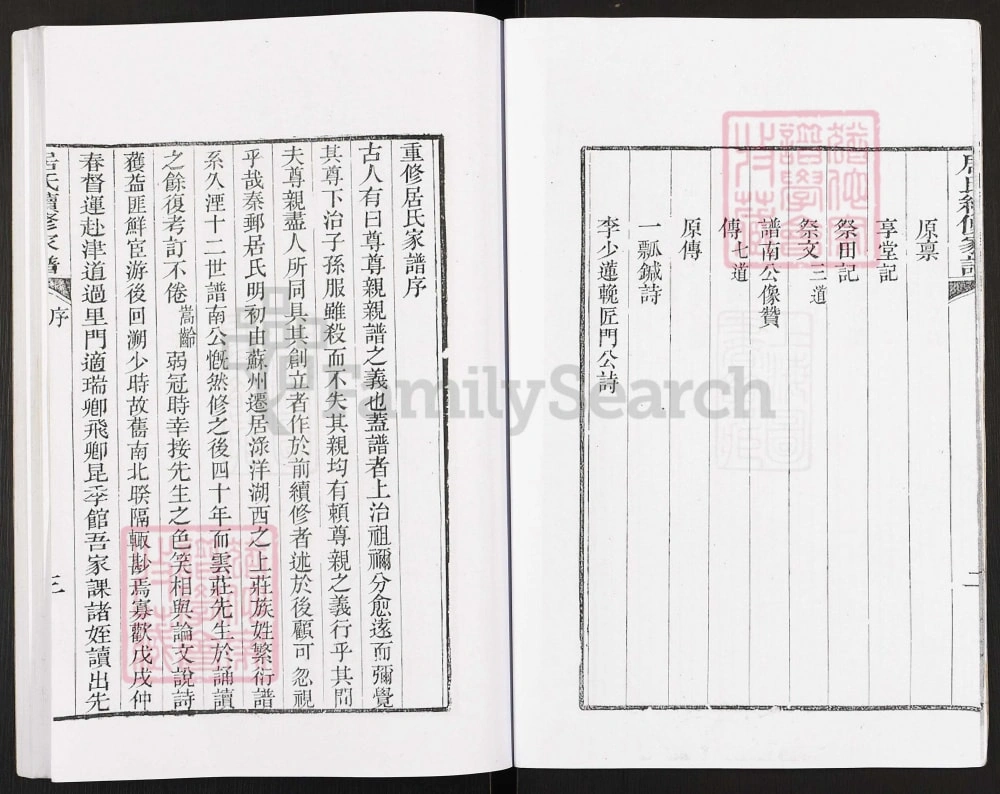 居氏續修家譜
二
原禀
享堂記
祭田記
祭文三道
譜南公像贊
傳七道
原傳
一瓢鍼詩
李少蓮輓匠門公詩
重修居氏家譜序
古人有曰尊尊親親譜之義也蓋譜者上治祖禰分愈遠而彌覺
其尊下治子孫服雖殺而不失其親均有賴尊親之義行乎其間
夫尊親盡人所同具其創立者作於前續修者述於後顧可忽視
乎哉秦郵居氏明初由蘇州遷居淥洋湖西之上莊族姓繁衍譜
系久湮十二世譜南公慨然修之後四十年而雲莊先生於誦讀
之餘復考訂不倦嵩齡弱冠時幸接先生之色笑相與論文說詩
獲益匪鮮宦游後回溯少時故舊南北暌隔輒尠焉寡歡戊戌仲
春督運赴津道過里門適瑞卿飛卿昆季館吾家課諸姪讀出先
居氏續修家譜
序
三
FamilySearch